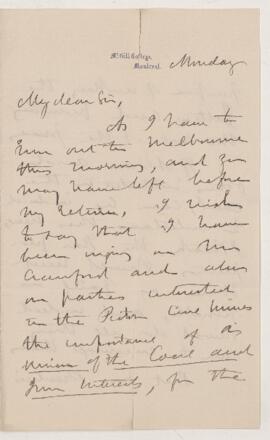 McGill College,
Montreal.
Monday
My dear Sir,
As I have to
run out to Melbourne
this morning, and you
may have left before
my return, I wish
to say that I have
been urging on Mr
Crawford and also
on parties interested
in the Pictou Coal Mines
the importance of a
union of the Coal and
Iron interests, for the